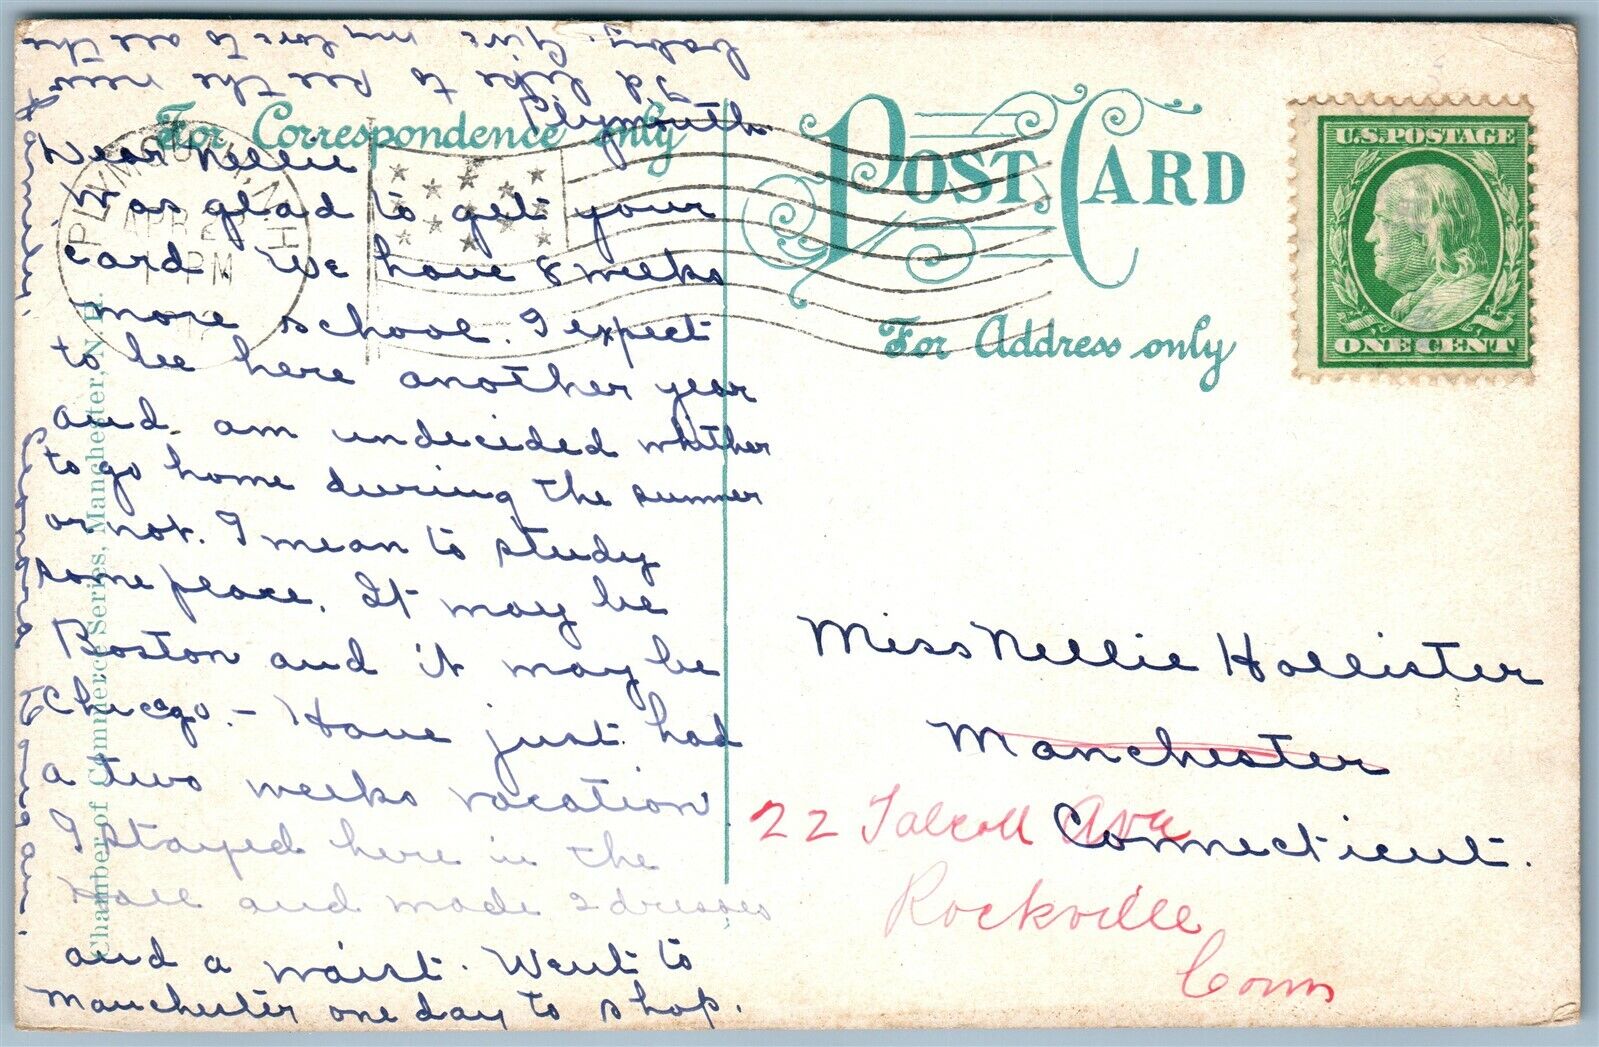 For Correspondence only
Plymouth
Dear Nellie
Was glad to get your
card. We have 8 weeks
more school. I expect
to be here another year
and am undecided whither
to go home during the summer
or not. I mean to study
some place. It may be
Boston and it may be
Chicago. - Have just had
a two weeks vacation.
I stayed here in the
Hall and made 2 dresses
and a waist. Went to
Manchester one day to shop.
I'd like to see the new
baby. Give my love to all the
family.
to quig am.
PLYMOUTH, N.H.
APR 2
1 PM
Chamber of Commerce Series, Manchester, N. H.
POST CARD
For Address only
U.S. POSTAGE
ONE CENT
Miss Nellie Hollister
Manchester
Connecticut.
22 Talcott Ave
Rockville
Conn